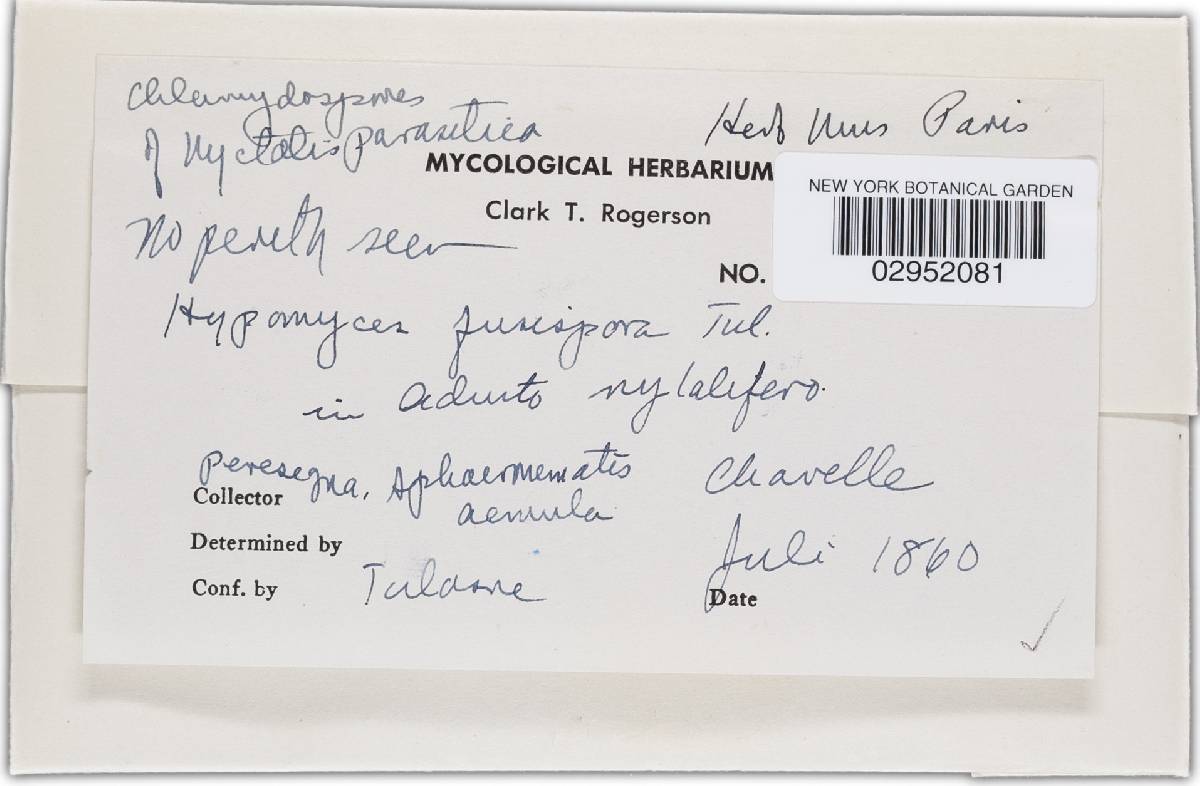 Chlamydospores
of Nyctalis parasitica
Herb Mus Paris
MYCOLOGICAL HERBARIUM
Clark T. Rogerson
NEW YORK BOTANICAL GARDEN
02952081
No perith seen
NO.
Hypomyces fusispora Tul.
in adusto
Chavelle
Collector
aemula
Determined by
Juli 1860
Conf. by Tulasne
Date